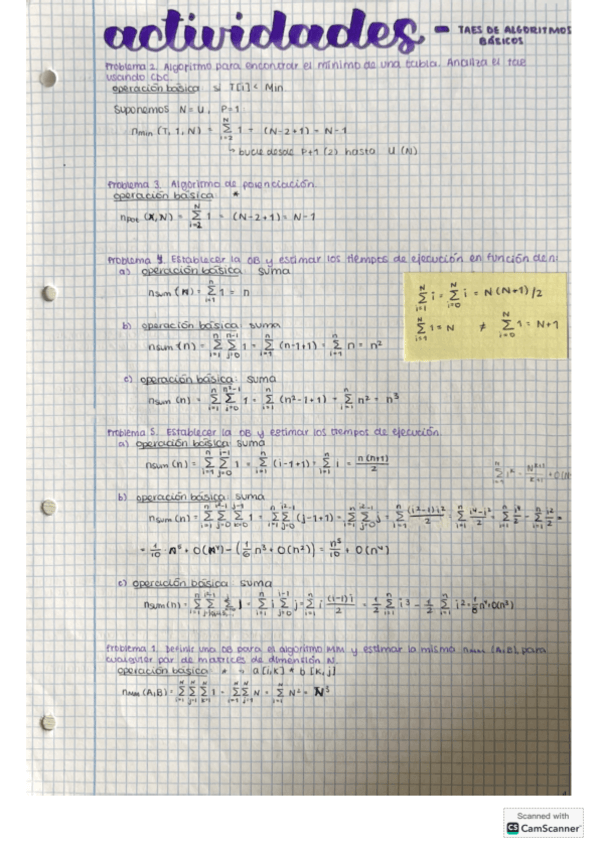 actividades - TAES DE ALGORITMOS BÁSICOS
Problema 2. Algoritmo para encontrar el mínimo de una tabla. Analiza el tae
usando CDC.
operación básica si T[i] < Min
Suponemos N = U, P = 1
n_min (T, 1, N) = Σ_{i=2}^{N} 1 = (N-2+1) = N-1
↳ bucle desde P+1 (2) hasta U (N)
Problema 3. Algoritmo de potenciación.
operación básica *
n_pot (X,N) = Σ_{i=2}^{N} 1 = (N-2+1) = N-1
Problema 4. Establecer la OB y estimar los tiempos de ejecución en función de n:
a) operación básica: suma
n_sum (n) = Σ_{i=1}^{n} 1 = n
Σ_{i=1}^{N} i = Σ_{i=0}^{N} i = N(N+1)/2
Σ_{i=1}^{N} 1 = N ≠ Σ_{i=0}^{N} 1 = N+1
b) operación básica: suma
n_sum (n) = Σ_{i=1}^{n} Σ_{j=0}^{n-1} 1 = Σ_{i=1}^{n} (n-1+1) = Σ_{i=1}^{n} n = n²
c) operación básica: suma
n_sum (n) = Σ_{i=1}^{n} Σ_{j=0}^{n²-1} 1 = Σ_{i=1}^{n} (n²-1+1) = Σ_{i=1}^{n} n² = n³
Problema 5. Establecer la OB y estimar los tiempos de ejecución.
a) operación básica: suma
n_sum (n) = Σ_{i=1}^{n} Σ_{j=0}^{i-1} 1 = Σ_{i=1}^{n} (i-1+1) = Σ_{i=1}^{n} i = n(n+1)/2
b) operación básica: suma
n_sum (n) = Σ_{i=1}^{n} Σ_{j=0}^{i²-1} Σ_{k=0}^{j-1} 1 = Σ_{i=1}^{n} Σ_{j=0}^{i²-1} (j-1+1) = Σ_{i=1}^{n} Σ_{j=0}^{i²-1} j = Σ_{i=1}^{n} (i²-1)i²/2 = Σ_{i=1}^{n} i⁴-i²/2 = Σ_{i=1}^{n} i⁴/2 - Σ_{i=1}^{n} i²/2 =
= 1/10 n⁵ + O(n⁴) - (1/6 n³ + O(n²)) = n⁵/10 + O(n⁴)
c) operación básica: suma
n_sum (n) = Σ i Σ j = Σ i (i-1)i/2 = 1/2 Σ i³ - 1/2 Σ i² = 1/8 n⁴ + O(n³)
Problema 1. Definir una OB para el algoritmo MM y estimar la misma n_MM (A,B) para
cualquier par de matrices de dimensión N.
operación básica * → a[i,k] * b[k,j]
n_MM (A,B) = Σ_{i=1}^{N} Σ_{j=1}^{N} Σ_{k=1}^{N} 1 = Σ_{i=1}^{N} Σ_{j=1}^{N} N = Σ_{i=1}^{N} N² = N³
Scanned with
CS CamScanner